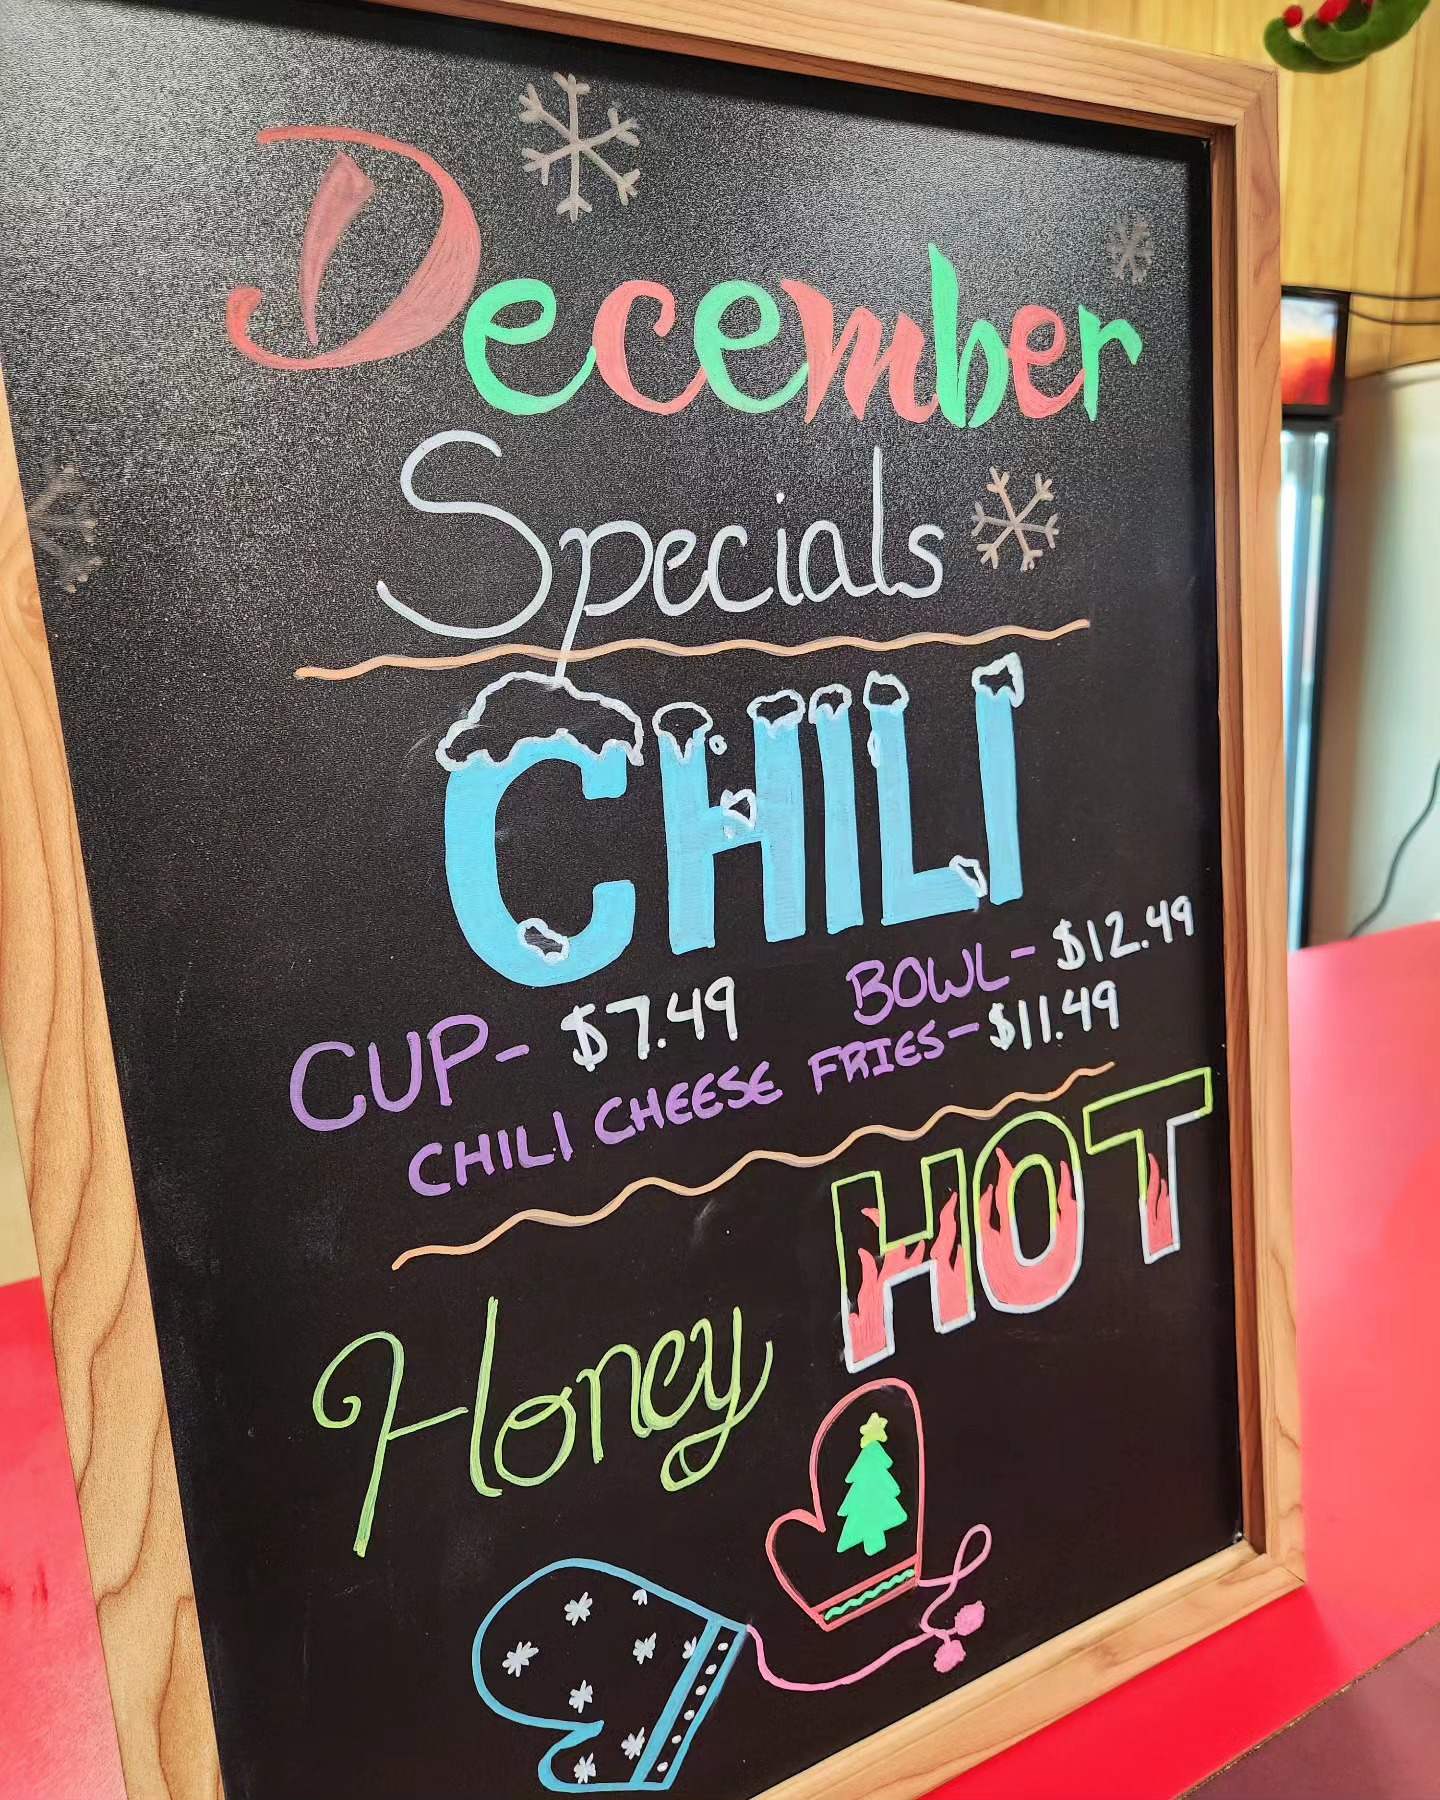 December
Specials
CHILI
CUP- $7.49 BOWL- $12.49
CHILI CHEESE FRIES- $11.49
Honey HOT